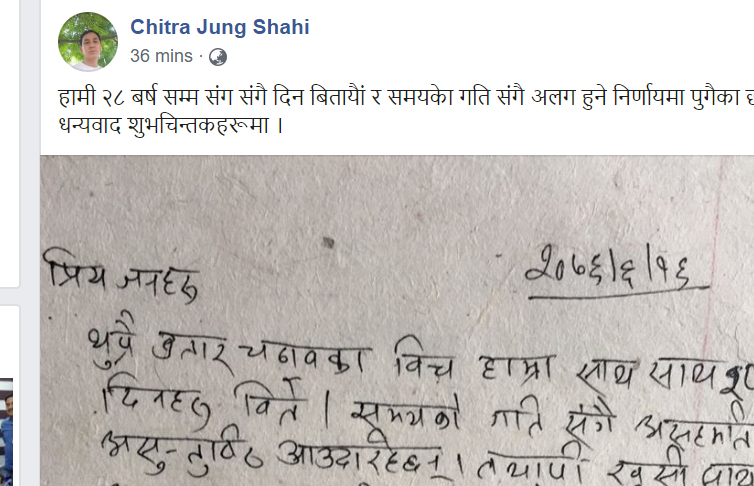 Chitra Jung Shahi
36 mins ·
हामी २८ बर्ष सम्म संग संगै दिन बितायौं र समयको गति संगै अलग हुने निर्णयमा पुगैका
धन्यवाद शुभचिन्तकहरूमा ।
२०७६/६/१६
प्रिय जनहरु
थुप्रै उतार चढावका विच हाम्रा साथ साथ
दिनहरु विते । समयको गति संगै असहमति
आउदारहेछन् । तथापी